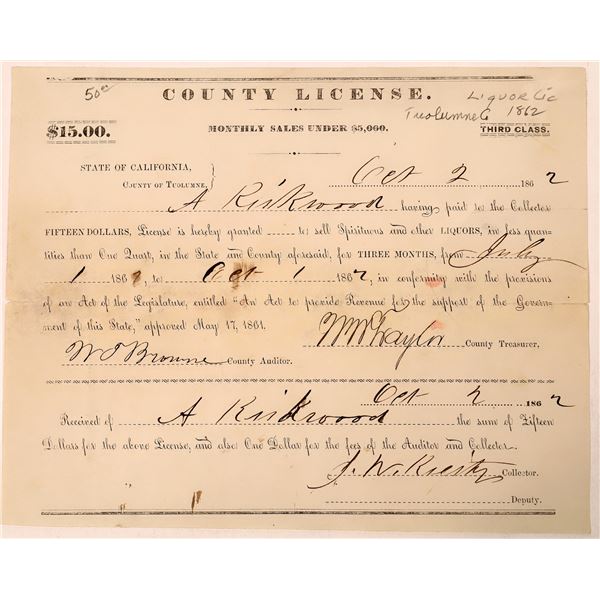 50
COUNTY LICENSE.
Liquor Lic
Tuolumne Co 1862
$15.00.
MONTHLY SALES UNDER $5,000.
THIRD CLASS.
STATE OF CALIFORNIA,
COUNTY OF TUOLUMNE,
Oct 2 1862
A Kirkwood having paid to the Collector
FIFTEEN DOLLARS, License is hereby granted to sell Spirituous and other LIQUORS, in less quan-
tities than One Quart, in the State and County aforesaid, for THREE MONTHS, from July
1 1862 to Oct 1 1862, in conformity with the provisions
of an Act of the Legislature, entitled "An Act to provide Revenue for the support of the Govern-
ment of this State," approved May 17, 1861.
Wm Taylor County Treasurer.
W J Browne County Auditor.
Oct 2 1862
Received of A Kirkwood the sum of Fifteen
Dollars for the above License, and also One Dollar for the fees of the Auditor and Collector.
J. W. Collector.
Deputy.